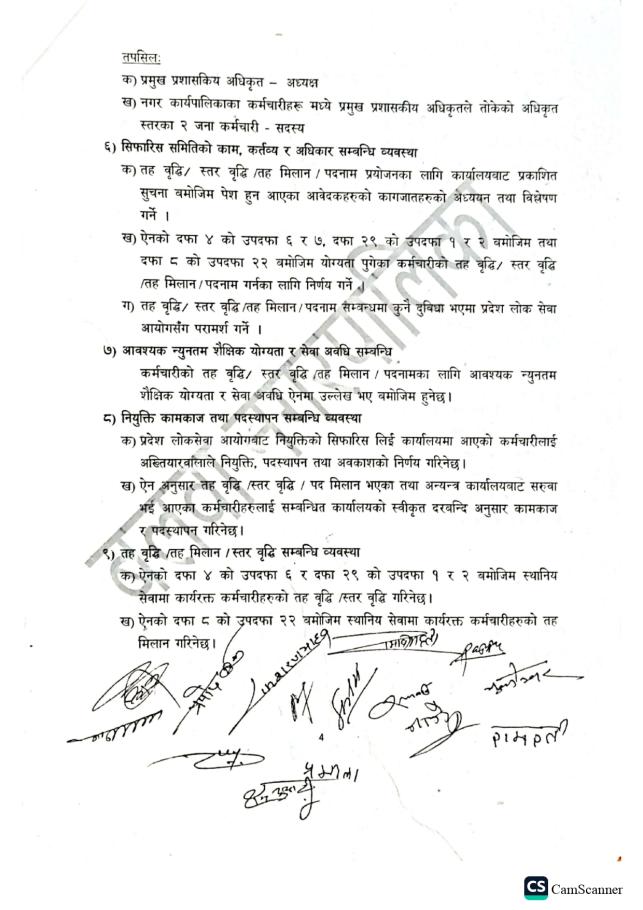 तपसिल:
क) प्रमुख प्रशासकिय अधिकृत – अध्यक्ष
ख) नगर कार्यपालिकाका कर्मचारीहरू मध्ये प्रमुख प्रशासकीय अधिकृतले तोकेको अधिकृत
स्तरका २ जना कर्मचारी - सदस्य
६) सिफारिस समितिको काम, कर्तव्य र अधिकार सम्बन्धि व्यवस्था
क) तह वृद्धि/ स्तर वृद्धि /तह मिलान / पदनाम प्रयोजनका लागि कार्यालयबाट प्रकाशित
सुचना बमोजिम पेश हुन आएका आवेदकहरुको कागजातहरुको अध्ययन तथा विश्लेषण
गर्ने ।
ख) ऐनको दफा ४ को उपदफा ६ र ७, दफा २९ को उपदफा १ र २ बमोजिम तथा
दफा ८ को उपदफा २२ बमोजिम योग्यता पुगेका कर्मचारीको तह वृद्धि/ स्तर वृद्धि
/तह मिलान/पदनाम गर्नका लागि निर्णय गर्ने ।
ग) तह वृद्धि/ स्तर वृद्धि/तह मिलान/पदनाम सम्बन्धमा कुनै दुबिधा भएमा प्रदेश लोक सेवा
आयोगसँग परामर्श गर्ने ।
७) आवश्यक न्युनतम शैक्षिक योग्यता र सेवा अवधि सम्बन्धि
कर्मचारीको तह वृद्धि/ स्तर वृद्धि /तह मिलान / पदनामका लागि आवश्यक न्युनतम
शैक्षिक योग्यता र सेवा अवधि ऐनमा उल्लेख भए बमोजिम हुनेछ।
८) नियुक्ति कामकाज तथा पदस्थापन सम्बन्धि व्यवस्था
क) प्रदेश लोकसेवा आयोगबाट नियुक्तिको सिफारिस लिई कार्यालयमा आएको कर्मचारीलाई
अख्तियारवालाले नियुक्ति, पदस्थापन तथा अवकाशको निर्णय गरिनेछ।
ख) ऐन अनुसार तह वृद्धि /स्तर वृद्धि / पद मिलान भएका तथा अन्यन्त्र कार्यालयबाट सरुवा
भई आएका कर्मचारीहरुलाई सम्बन्धित कार्यालयको स्वीकृत दरबन्दि अनुसार कामकाज
र पदस्थापन गरिनेछ।
९) तह वृद्धि /तह मिलान /स्तर वृद्धि सम्बन्धि व्यवस्था
क) ऐनको दफा ४ को उपदफा ६ र दफा २९ को उपदफा १ र २ बमोजिम स्थानिय
सेवामा कार्यरक्त कर्मचारीहरुको तह वृद्धि /स्तर वृद्धि गरिनेछ।
ख) ऐनको दफा ८ को उपदफा २२ बमोजिम स्थानिय सेवामा कार्यरक्त कर्मचारीहरुको तह
मिलान गरिनेछ।
4
प्रमीला
रामपती
CS CamScanner